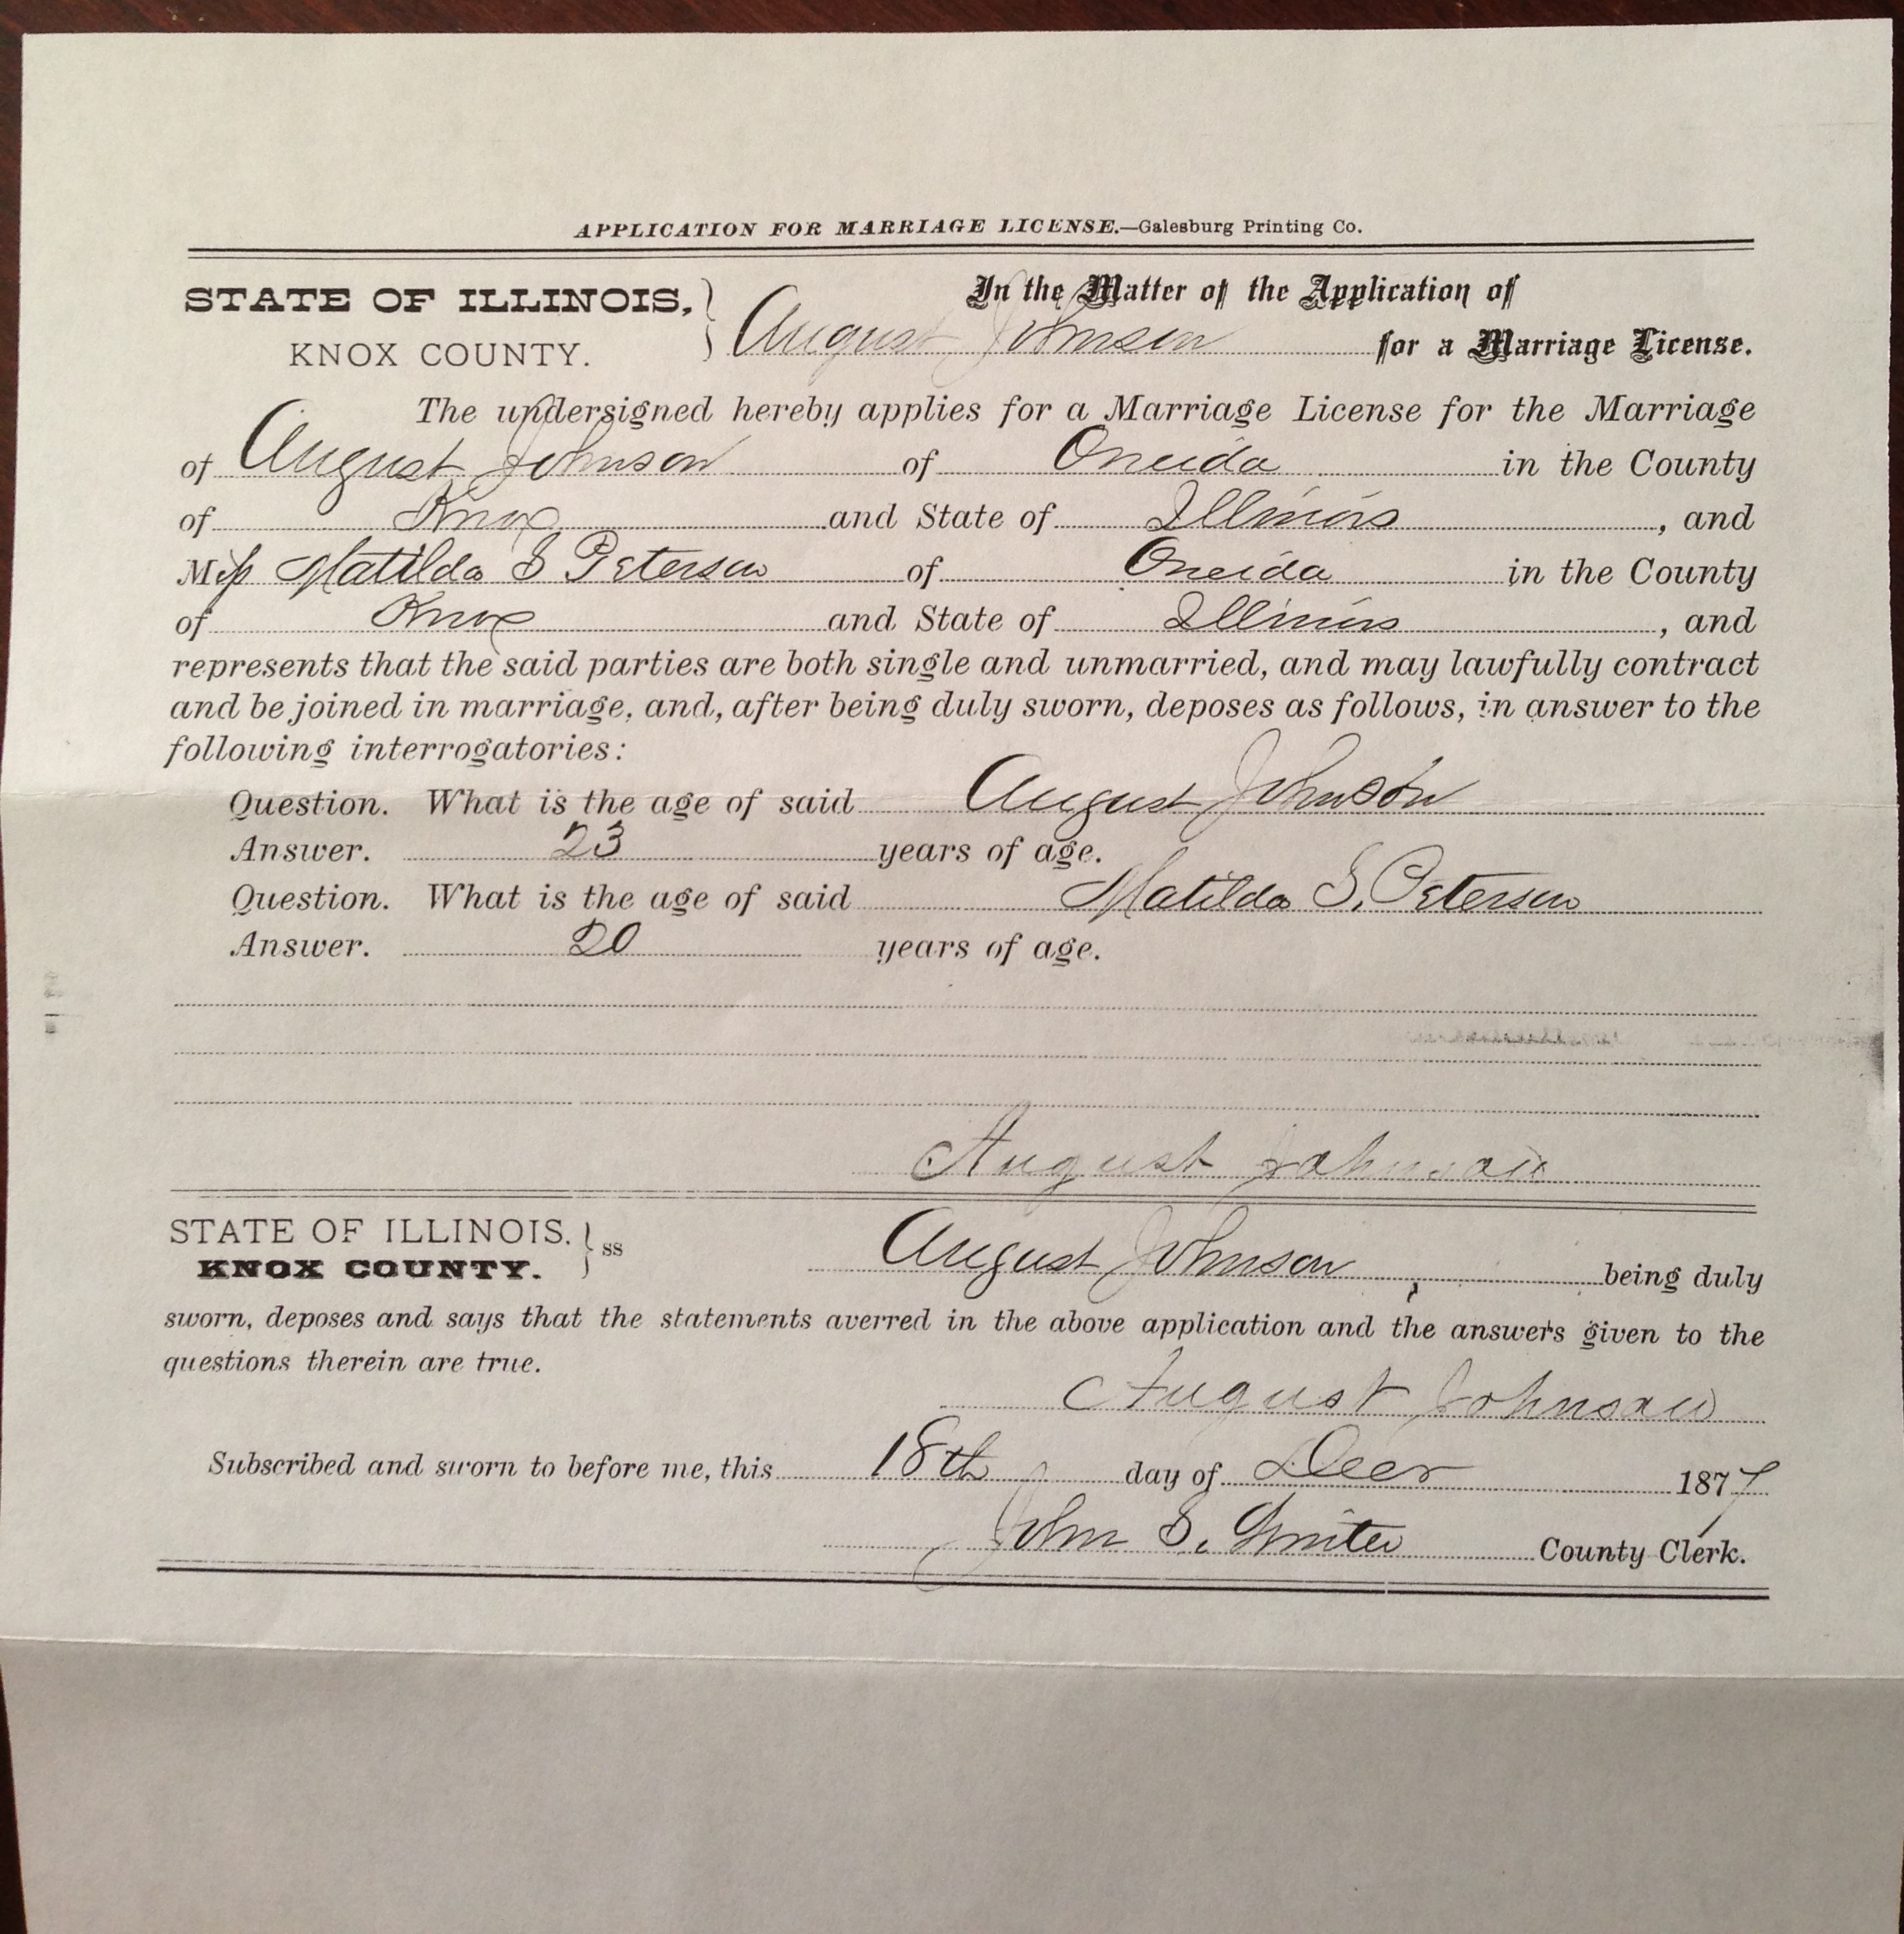 APPLICATION FOR MARRIAGE LICENSE.—Galesburg Printing Co.
STATE OF ILLINOIS, } In the Matter of the Application of
KNOX COUNTY. August Johnson for a Marriage License.
The undersigned hereby applies for a Marriage License for the Marriage
of August Johnson of Oneida in the County
of Knox and State of Illinois, and
Miss Matilda S Peterson of Oneida in the County
of Knox and State of Illinois, and
represents that the said parties are both single and unmarried, and may lawfully contract
and be joined in marriage, and, after being duly sworn, deposes as follows, in answer to the
following interrogatories:
Question. What is the age of said August Johnson
Answer. 23 years of age.
Question. What is the age of said Matilda S. Peterson
Answer. 20 years of age.
August Johnson
STATE OF ILLINOIS. } ss
KNOX COUNTY. August Johnson, being duly
sworn, deposes and says that the statements averred in the above application and the answers given to the
questions therein are true.
August Johnson
Subscribed and sworn to before me, this 18th day of Decr 1877
John S. County Clerk.